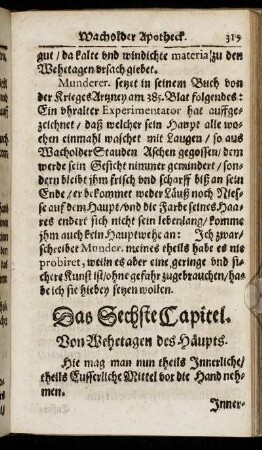 Wacholder Apotheck. 319
gut / da kalte vnd windichte materia zu den
Wehetagen vrsach giebet.
Munderer. setzet in seinem Buch von
der Krieges Artzney am 385. Blat folgendes:
Ein vhralter Experimentator hat auffge-
zeichnet / daß welcher sein Haupt alle wo-
chen einmahl waschet mit Laugen / so aus
WacholderStauden Aschen gegossen / dem
werde sein Gesicht nimmer gemindert / son-
dern bleibt ihm frisch vnd scharff biß an sein
Ende / er bekommet weder Läuß noch Nies-
se auf dem Haupt / vnd die Farbe seines Haa-
res endert sich nicht sein lebenlang / komme
jhm auch kein Hauptwehe an: Ich zwar /
schreibet Munder. meines theils habe es nie
probiret, weiln es aber eine geringe vnd si-
chere Kunst ist / ohne gefahr zugebrauchen / ha-
be ich sie hiebey setzen wollen.
Das Sechste Capitel.
Von Wehetagen des Häupts.
Hie mag man nun theils Innerliche /
theils Eusserliche Mittel vor die Hand neh-
men.
Inner-